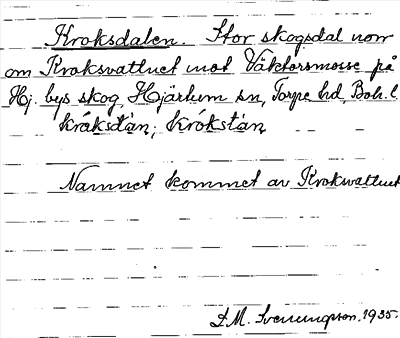 Kroksdalen. Stor skogsdal norr
om Kroksvattnet mot Väktorsmosse på
Hj. bys skog, Hjärtum sn, Torpe hd, Boh. l.
kråksdàn; krókstàn
Namnet kommet av Krokvattnet
S. M. Svenungson. 1935.